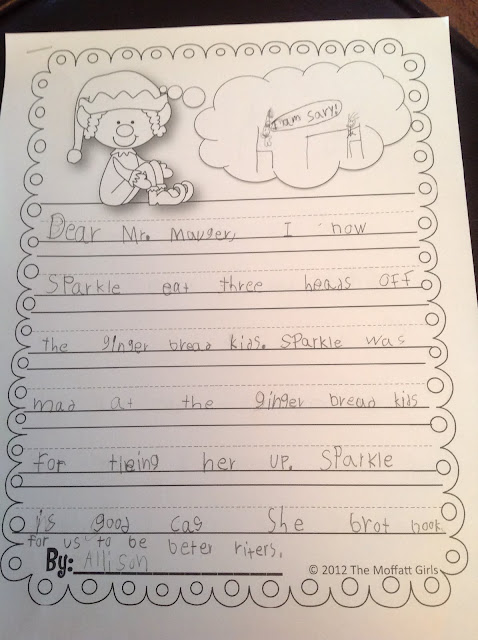 I am sary!
Dear Mr. Mauger, I now
Sparkle eat three heads OFF
the ginger bread kids. Sparkle was
mad at the ginger bread kids
for tieing her up. Sparkle
is good cas She brot book
for us to be beter riters.
By: Allison
© 2012 The Moffatt Girls